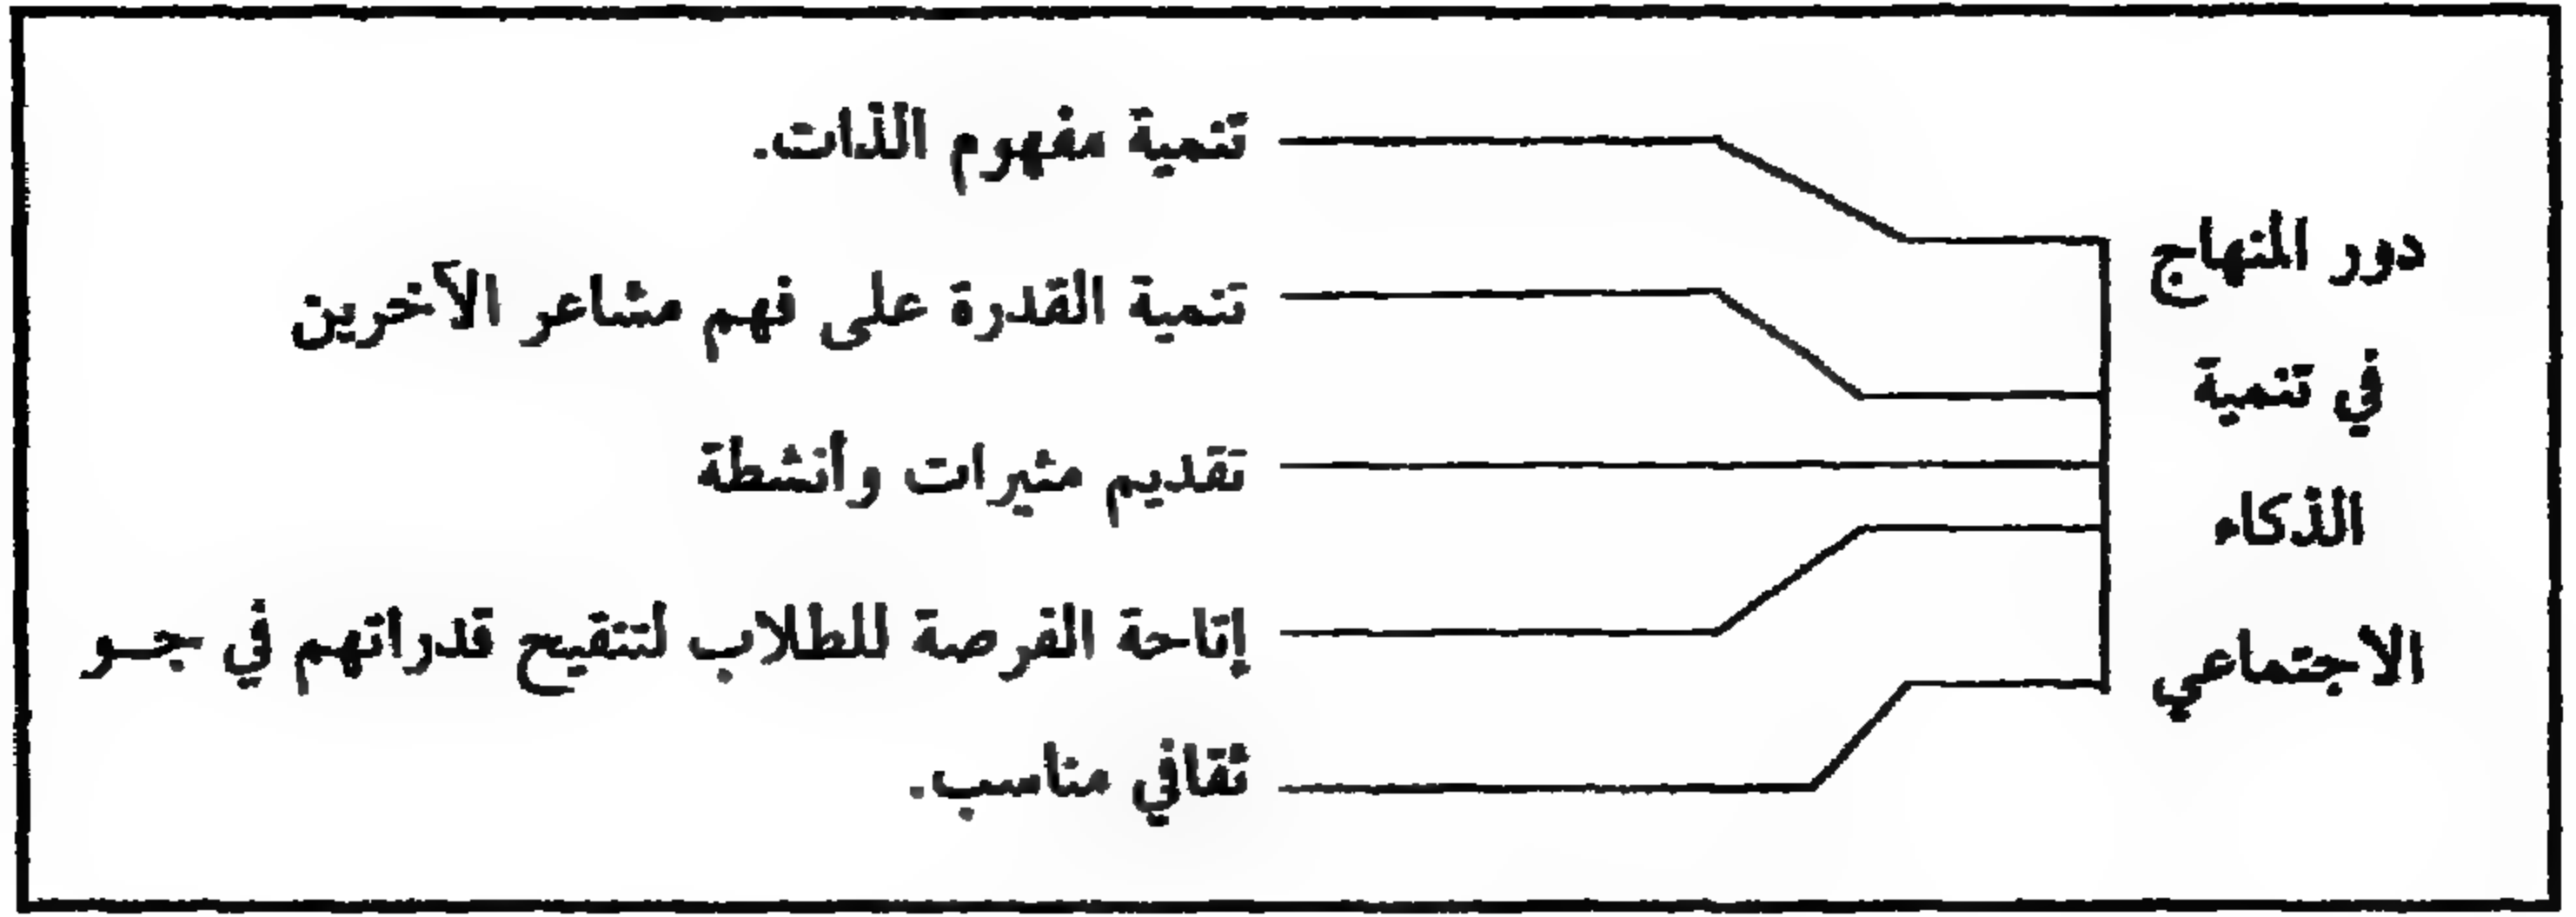 دور المنهاج
في تنمية
الذكاء
الاجتماعي
تنمية مفهوم الذات.
تنمية القدرة على فهم مشاعر الآخرين
تقديم مثيرات وأنشطة
إتاحة الفرصة للطلاب لتنقيح قدراتهم في جو
ثقافي مناسب.